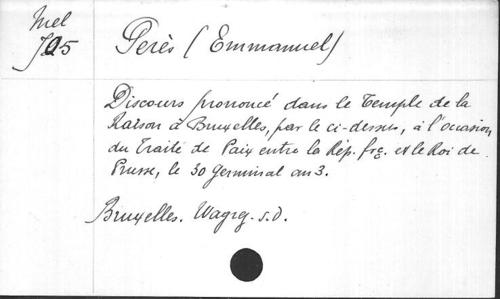 Mel
725
Perès (Emmanuel)
Discours prononcé dans le Temple de la
Raison à Bruxelles, par le ci-dessus, à l'occasion
du Traité de Paix entre la Rép. frç. et le Roi de
Prusse, le 30 Germinal an 3.
Bruxelles. Wagrg. s.d.